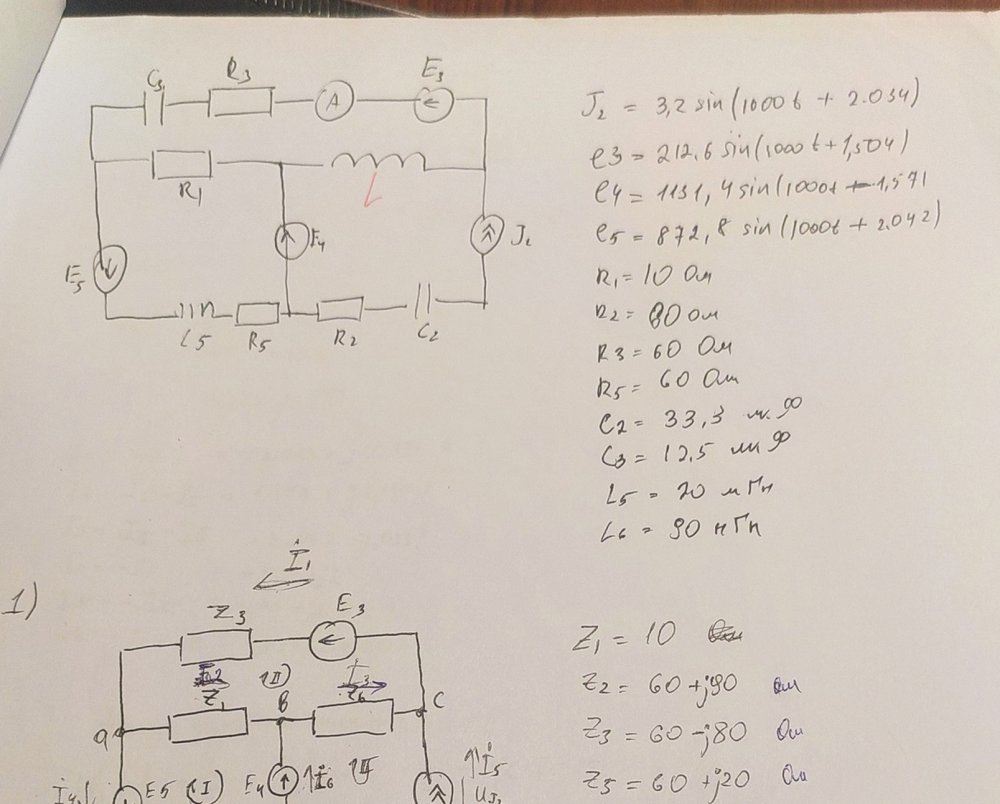 C3 R3 A E3
R1 L
E5 E4 J2
L5 R5 R2 C2
J2 = 3,2 sin(1000t + 2.034)
e3 = 212,6 sin(1000t + 1,504)
e4 = 1131,4 sin(1000t - 1,571
e5 = 872,8 sin(1000t + 2.042)
R1 = 10 Ом
R2 = 80 Ом
R3 = 60 Ом
R5 = 60 Ом
C2 = 33,3 м
C3 = 12.5 мк
L5 = 20 мГн
L6 = 90 мГн
1)
İ1
Z3 E3
II İ3
Z1 B Z6 C
a
E5 (I) E4 İ6 İ5
UJ2
Z1 = 10
Z2 = 60 + j90 Ом
Z3 = 60 - j80 Ом
Z5 = 60 + j20 Ом